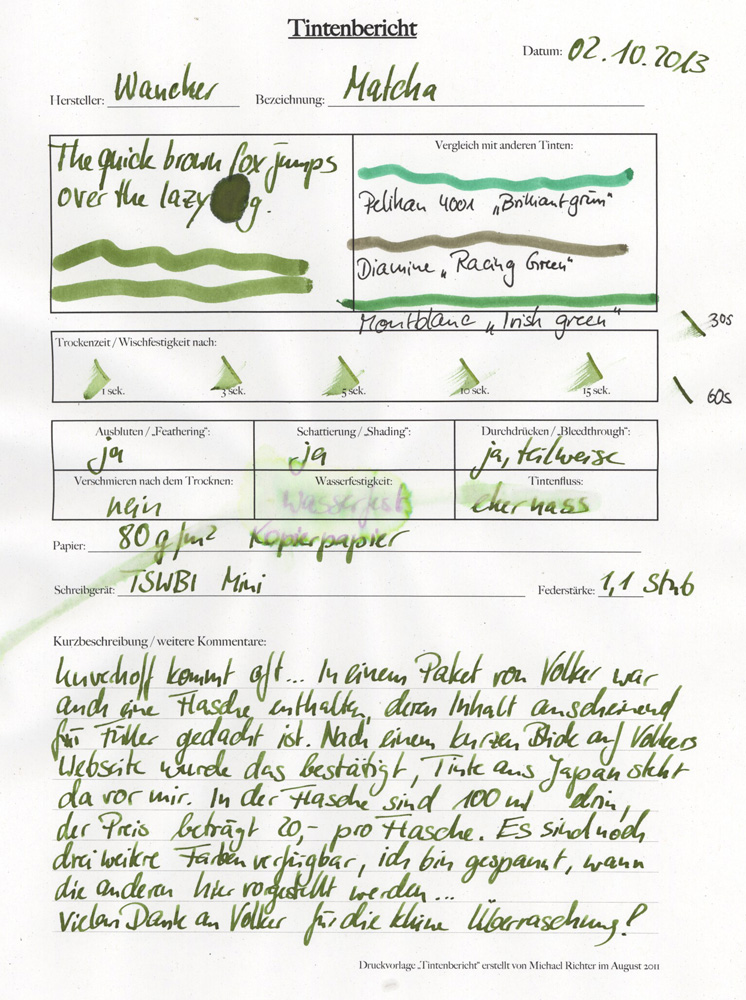 Tintenbericht
Datum: 02.10.2013
Hersteller: Wancher Bezeichnung: Matcha
The quick brown fox jumps
over the lazy g.
Vergleich mit anderen Tinten:
Pelikan 4001 „Brilliantgrün"
Diamine „Racing Green"
Montblanc „Irish green"
30s
Trockenzeit / Wischfestigkeit nach:
1 sek. 3 sek. 5 sek. 10 sek. 15 sek.
60s
Ausbluten / „Feathering": Schattierung / „Shading": Durchdrücken / „Bleedthrough":
ja ja ja, teilweise
Verschmieren nach dem Trocknen: Wasserfestigkeit: Tintenfluss:
nein Wasserfest eher nass
Papier: 80 g/m² Kopierpapier
Schreibgerät: TSWBI Mini Federstärke: 1,1 Stub
Kurzbeschreibung / weitere Kommentare:
Unverhofft kommt oft... In einem Paket von Volker war
auch eine Flasche enthalten, deren Inhalt anscheinend
für Füller gedacht ist. Nach einem kurzen Blick auf Volkers
Webseite wurde das bestätigt, Tinte aus Japan steht
da vor mir. In der Flasche sind 100 ml drin,
der Preis beträgt 20,- pro Flasche. Es sind noch
drei weitere Farben verfügbar, ich bin gespannt, wann
die anderen hier vorgestellt werden...
Vielen Dank an Volker für die kleine Überraschung!
Druckvorlage „Tintenbericht" erstellt von Michael Richter im August 2011